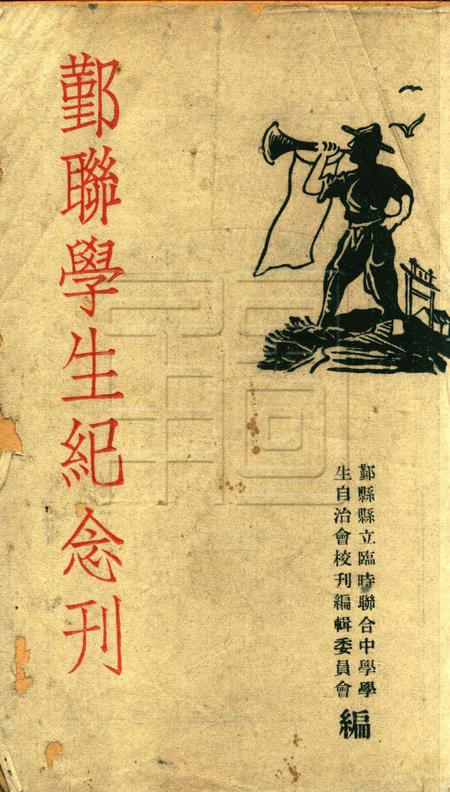 鄞聯學生紀念刊
鄞縣縣立臨時聯合中學學
生自治會校刊編輯委員會
編